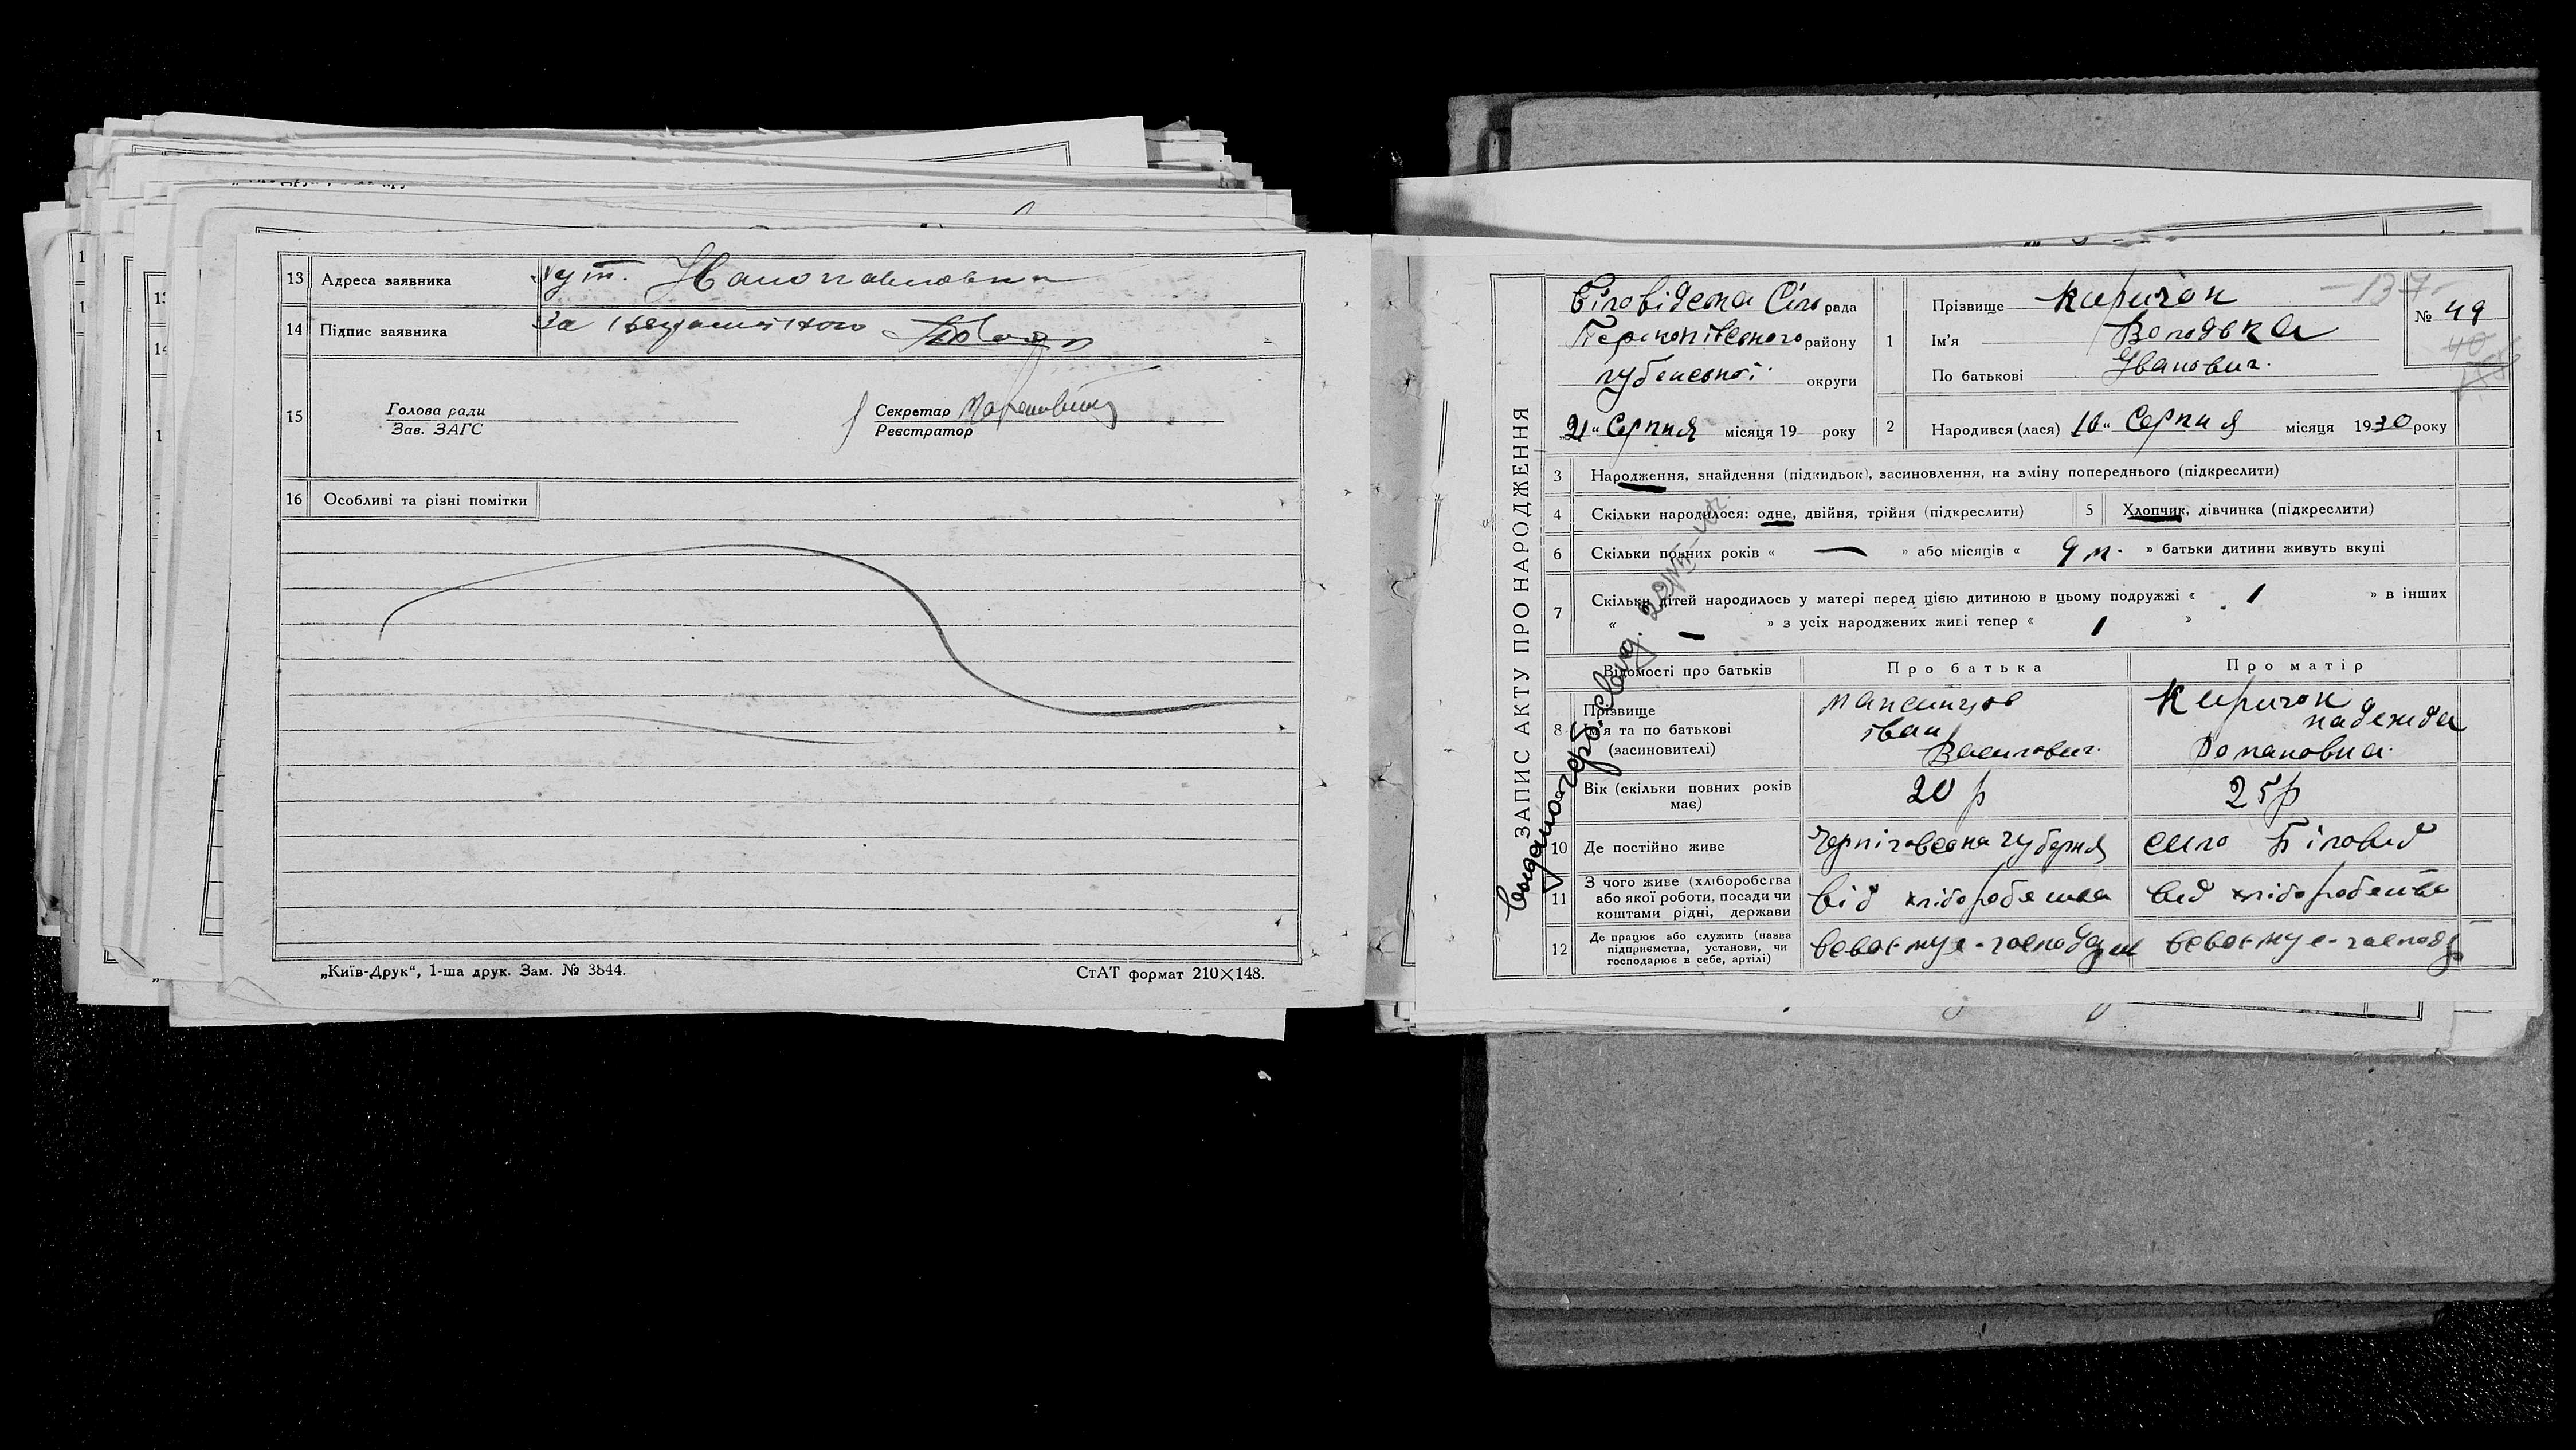 13 Адреса заявника хут.
14 Підпис заявника За
15 Голова ради
Зав. ЗАГС
Секретар
Реєстратор
16 Особливі та різні помітки
„Київ-Друк“, 1-ша друк. Зам. № 3844.
СтАТ формат 210×148.
ЗАПИС АКТУ ПРО НАРОДЖЕННЯ
Біловідська Сіль рада
району
округи
21 „ Серпня місяця 19 року
1 Прізвище Киричок
Ім'я Володька
По батькові Іванович.
-137-
№ 49
40
2 Народився (лася) 10 „ Серпня місяця 1930 року
3 Народження, знайдення (підкидьок), засиновлення, на зміну попереднього (підкреслити)
4 Скільки народилося: одне, двійня, трійня (підкреслити) 5 Хлопчик, дівчинка (підкреслити)
6 Скільки повних років « — » або місяців « 9 м. » батьки дитини живуть вкупі
7 Скільки дітей народилось у матері перед цією дитиною в цьому подружжі « 1 » в інших
« — » з усіх народжених живі тепер « 1 »
Відомості про батьків Про батька Про матір
8 Прізвище
Ім'я та по батькові
(засиновителі)
Іван
Василович.
Киричок
надежда
Романовна.
Вік (скільки повних років має) 20 р 25 р
10 Де постійно живе Черніговська губерня село Біловид
11 З чого живе (хліборобства
або якої роботи, посади чи
коштами рідні, держави
від хліборобства вид хліборобства
12 Де працює або служить (назва
підприємства, установи, чи
господарює в себе, артілі)